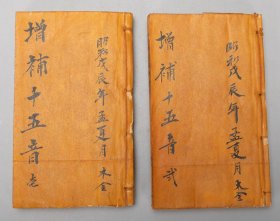 昭和戊辰年孟夏月
增補十五音
昭和戊辰年孟夏月
增補十五音 弍